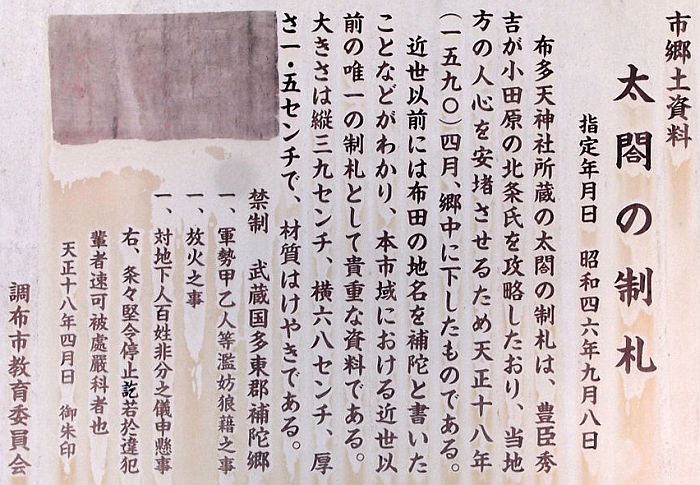 市郷土資料
太閤の制札
指定年月日　昭和四六年九月八日
布多天神社所蔵の太閤の制札は、豊臣秀
吉が小田原の北条氏を攻略したおり、当地
方の人心を安堵させるため天正十八年
(一五九〇)四月、郷中に下したものである。
近世以前には布田の地名を補陀と書いた
ことなどがわかり、本市域における近世以
前の唯一の制札として貴重な資料である。
大きさは縦三九センチ、横六八センチ、厚
さ一・五センチで、材質はけやきである。
禁制　武蔵国多東郡補陀郷
一、軍勢甲乙人等濫妨狼藉之事
一、放火之事
一、対地下人百姓非分之儀申懸事
右、条々堅令停止訖若於違犯
輩者速可被處嚴科者也
天正十八年四月日　御朱印
調布市教育委員会